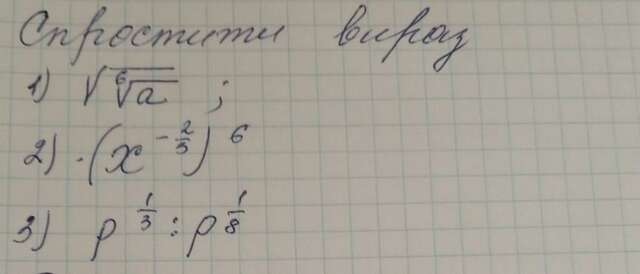 Спростити вираз
1) √⁶√a ;
2) · (x^{-2/3})^6
3) p^{1/3} : p^{1/8}